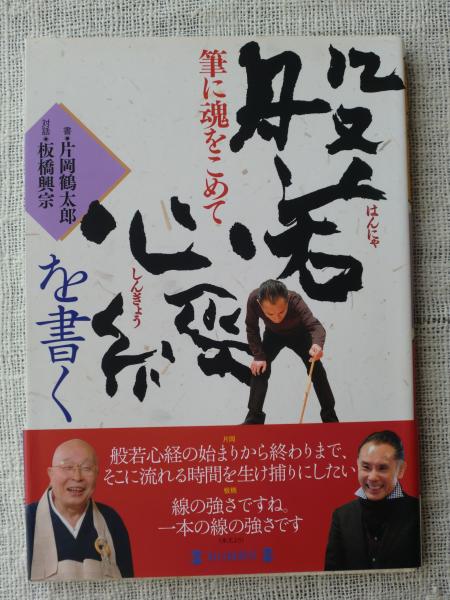 筆に魂をこめて
般若
はんにゃ
心經
しんきょう
を書く
書・片岡鶴太郎
対話・板橋興宗
片岡
般若心経の始まりから終わりまで、
そこに流れる時間を生け捕りにしたい
板橋
線の強さですね。
一本の線の強さです
(本文より)